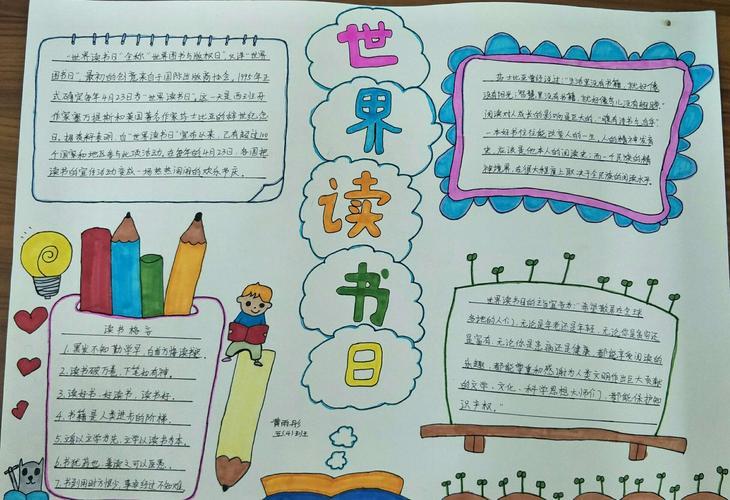 世
界
读
书
日
"世界读书日"全称"世界图书与版权日",又译"世界
图书日",最初的创意来自于国际出版商协会。1995年正
式确定每年4月23日为"世界读书日",这一天是西班牙
作家塞万提斯和英国著名作家莎士比亚的辞世纪念
日。据资料表明,自"世界读书日"宣布以来,已有超过100
个国家和地区参与此项活动。在每年的4月23日,各国把
读书的宣传活动变成一场热热闹闹的欢乐节庆。
莎士比亚曾经说过:"生活里没有书籍,就好像
没有阳光;智慧里没有书籍,就好像鸟儿没有翅膀"
阅读对人成长的影响是巨大的,
一本好书往往能改变人的一生,人的精神发育
史,应该是他本人的阅读史;而一个民族的精
神境界,在很大程度上取决于全民族的阅读水平。
读书格言
1.黑发不知勤学早,白首方悔读书迟。
2.读书破万卷,下笔如有神。
3.读好书,好读书,读书好。
4.书籍是人类进步的阶梯。
5.立身以立学为先,立学以读书为本。
6.书犹药也,善读之可以医愚。
7.书到用时方恨少,事非经过不知难。
黄雨彤
五(4)班
世界读书日的主旨宣言为:"希望散居在全球
各地的人们,无论是年老还是年轻,无论你是贫穷还
是富有,无论你是患病还是健康,都能享受阅读的
乐趣,都能尊重和感谢为人类文明作出巨大贡献
的文学、文化、科学思想大师们,都能保护知
识产权。"